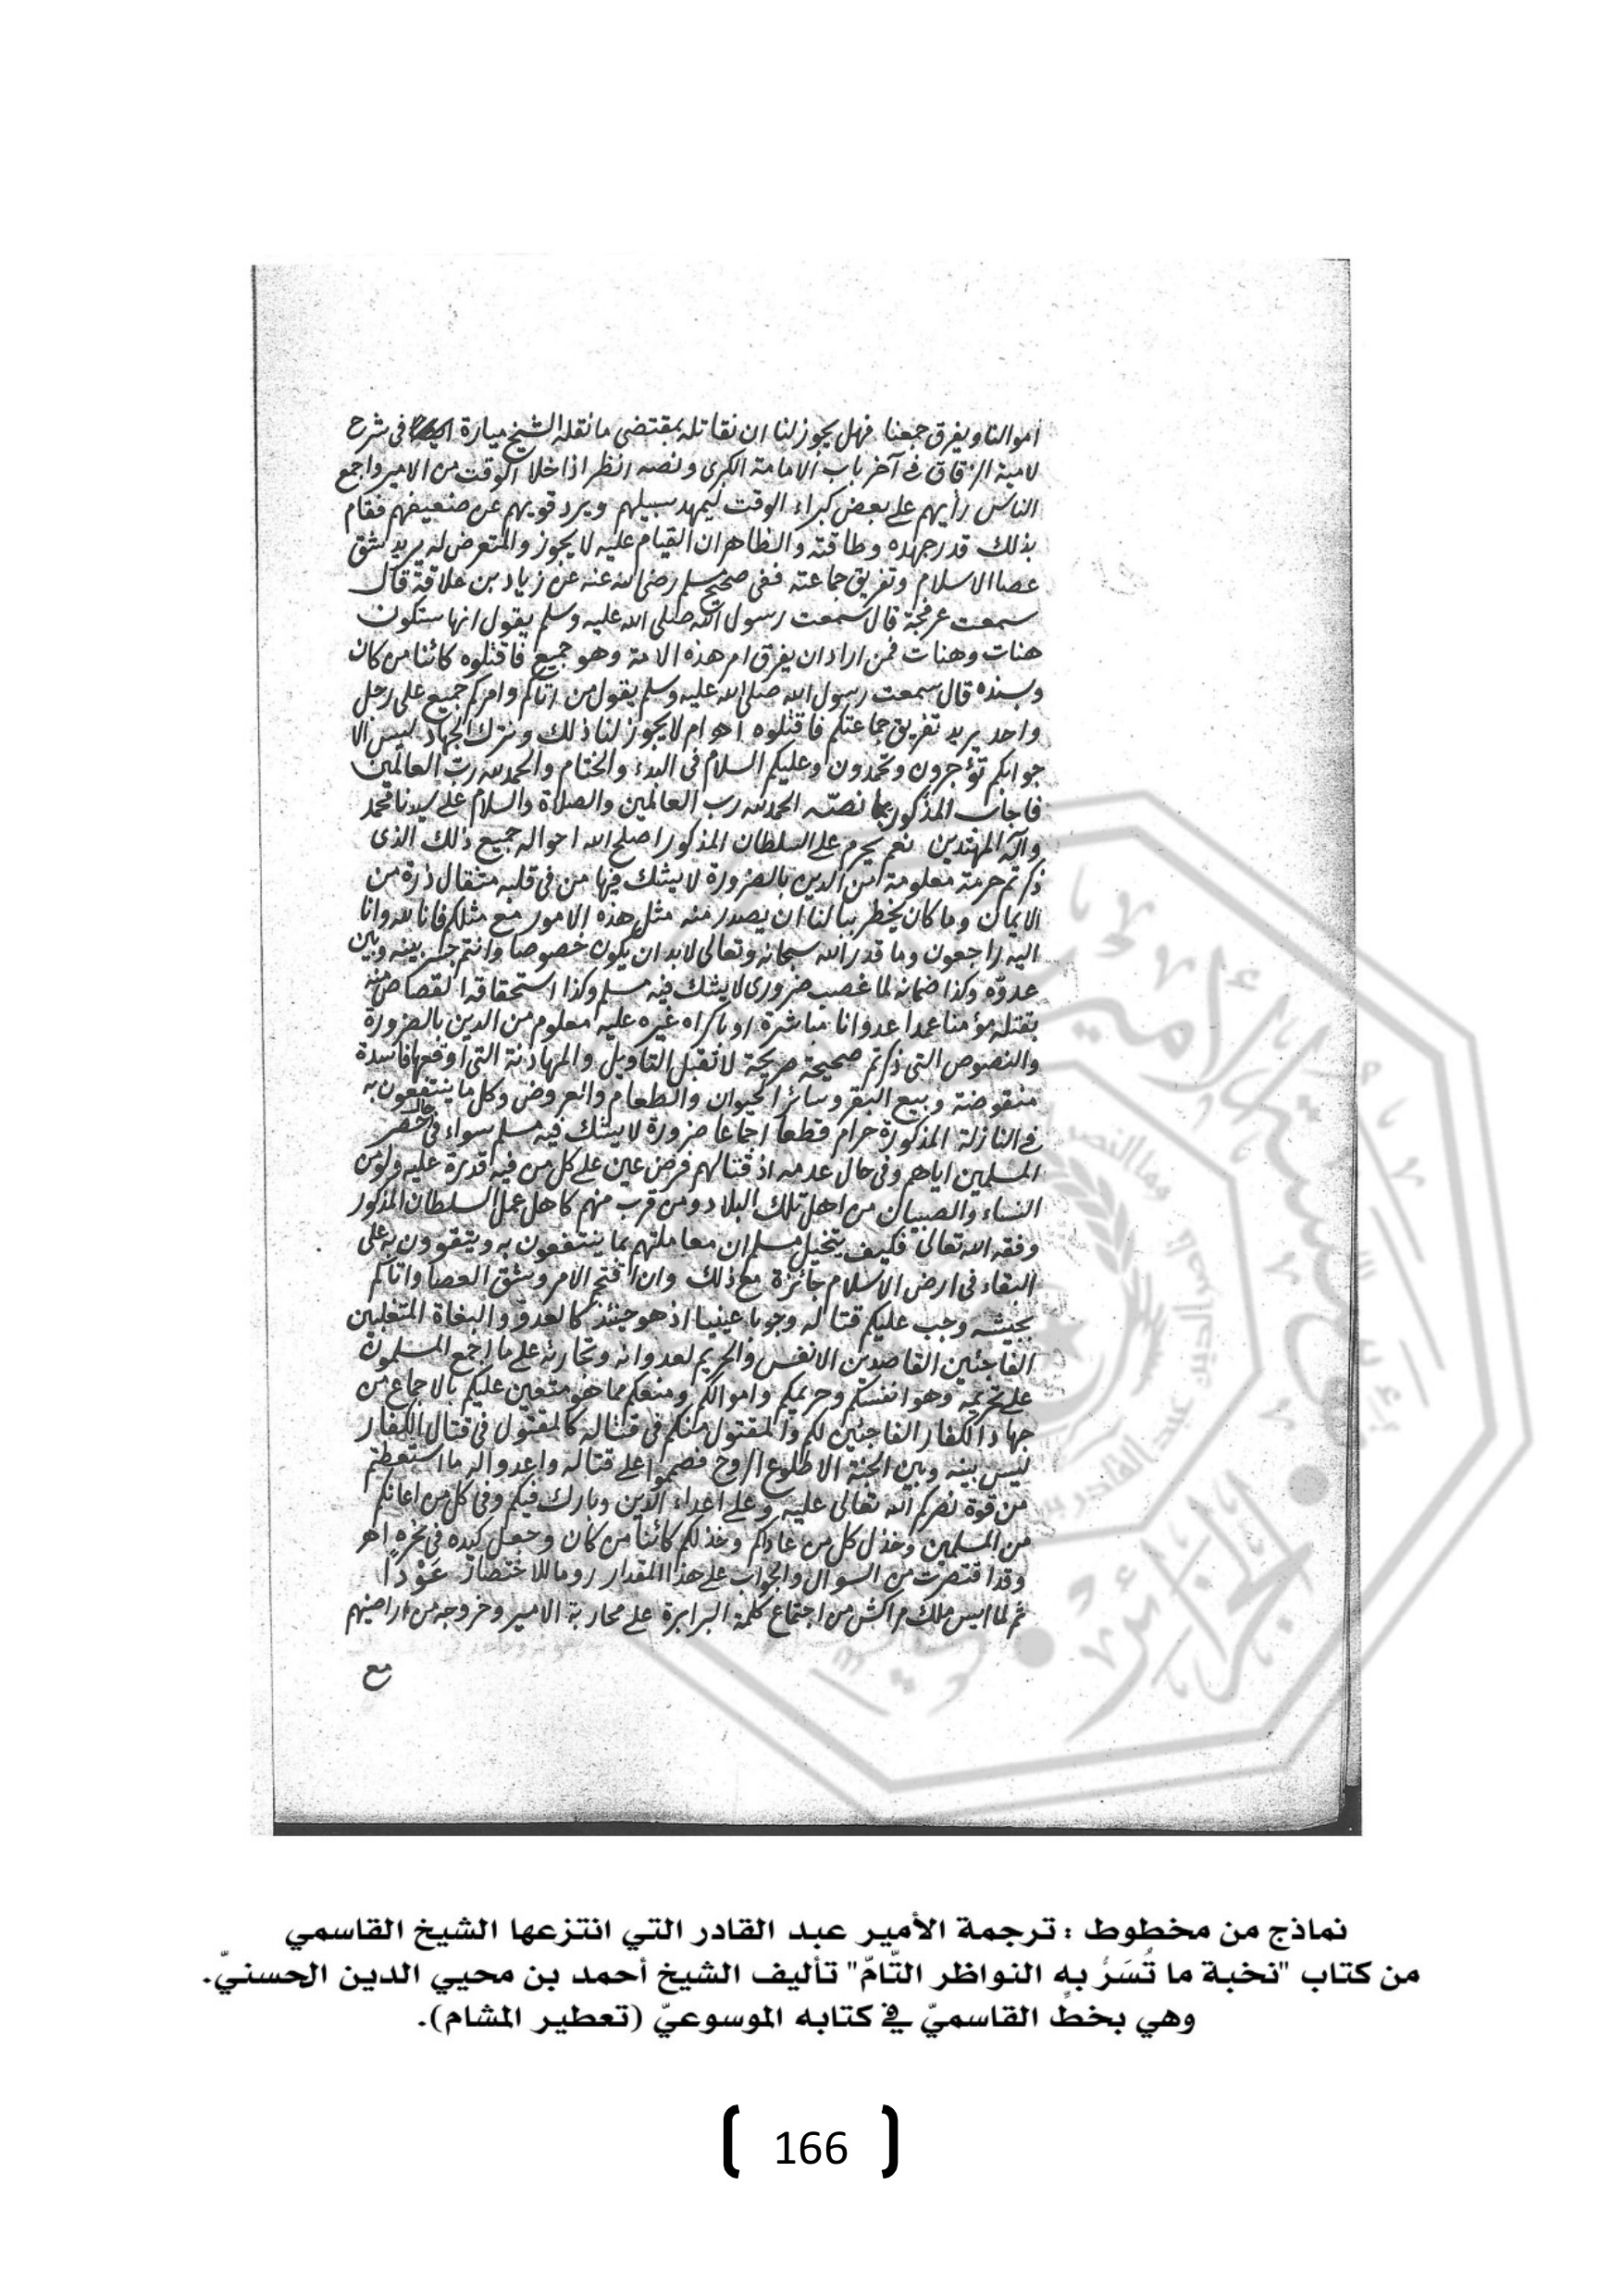 اموالنا ويفرق جمعنا فهل يجوز لنا ان نقاتله بمقتضى ما نقله الشيخ ميارة في شرح
لامية الزقاق في آخر باب الامامة الكبرى ونصه انظر اذا خلا الوقت من الامير واجمع
الناس رأيهم على بعض كبراء الوقت ليمهد سبيلهم ويرد قويهم عن ضعيفهم فقام
بذلك قدر جهده وطاقته والظاهر ان القيام عليه لا يجوز والمتعرض له يريد شق
عصا الاسلام وتفريق جماعته ففى صحيح مسلم رضى الله عنه عن زياد بن علاقة قال
سمعت عرفجة قال سمعت رسول الله صلى الله عليه وسلم يقول انها ستكون
هنات وهنات فمن اراد ان يفرق امر هذه الامة وهو جميع فاقتلوه كائنا من كان
وبسنده قال سمعت رسول الله صلى الله عليه وسلم يقول من اتاكم وامركم جميع على رجل
واحد يريد تفريق جماعتكم فاقتلوه اهـ ام لا يجوز لنا ذلك ونترك الجهاد ليس الا
جوابكم تؤجرون وتحمدون وعليكم السلام فى البدء والختام والحمد لله رب العالمين
فاجاب المذكور بما نصّه الحمد لله رب العالمين والصلاة والسلام على سيدنا محمد
وآله المهتدين نعم يحرم على السلطان المذكور اصلح الله احواله جميع ذلك الذى
ذكرتم حرمة معلومة من الدين بالضرورة لا يشك فيها من فى قلبه مثقال ذرة من
الايمان وما كان يخطر ببالنا ان يصدر منه مثل هذه الامور مع مثلكم فانا لله وانا
اليه راجعون وما قدر الله سبحانه وتعالى لابد ان يكون خصوصا وانتم جسر بينه وبين
عدوّه وكذا ضمانه لما غصب ضرورى لا يشك فيه مسلم وكذا استحقاقه القصاص منه
بقتله مؤمنا عمدا عدوانا مباشرة او باكراه غيره عليه معلوم من الدين بالضرورة
والنصوص التى ذكرتم صحيحة صريحة لا تقبل التاويل والمهادنة التى اوقعها فاسدة
منقوضة وبيع البقر وسائر الحيوان والطعام والعروض وكل ما ينتفعون به
في النازلة المذكورة حرام قطعا اجماعا ضرورة لا يشك فيه مسلم سواء فى حال حصر
المسلمين اياهم وفى حال عدمه اذ قتالهم فرض عين على كل من فيه قدرة عليه ولو من
النساء والصبيان من اهل تلك البلاد ومن قرب منهم كاهل عمل السلطان المذكور
وفقه الله تعالى فكيف يتخيل مسلم ان معاملتهم بما ينتفعون به ويتقوون به على
البقاء فى ارض الاسلام جائزة مع ذلك وان اقتحم الامر وشق العصا واتاكم
بجيشه وجب عليكم قتاله وجوبا عينيا اذ هو حينئذ كالعدو والبغاة المتغلبين
الفاجئين القاصدين الانفس والحريم لعدوانه وتجاريه على ما اجمع المسلمون
على تحريمه وهو انفسكم وحريمكم واموالكم ومنعكم مما هو متعين عليكم بالاجماع من
جهاد الكفار الفاجئين لكم والمقتول منكم فى قتاله كالمقتول فى قتال الكفار
ليس بينه وبين الجنة الا طلوع الروح فصمموا على قتاله واعدوا له ما استطعتم
من قوة نصركم الله تعالى عليه وعلى اعداء الدين وبارك فيكم وفى كل من اعانكم
من المسلمين وخذل كل من عاداكم وخذلكم كائنا من كان وجعل كيده فى نحره اهـ
وقد اقتصرت من السوال والجواب على هذا المقدار روما للاختصار عَوْدًا
ثم لما ايس ملك مراكش من اجتماع كلمة البرابرة على محاربة الامير وخروجه من اراضيهم
مع
نماذج من مخطوط : ترجمة الأمير عبد القادر التي انتزعها الشيخ القاسمي
من كتاب "نخبة ما تُسَرُّ به النواظر التّامّ" تأليف الشيخ أحمد بن محيي الدين الحسنيّ.
وهي بخطِّ القاسميّ في كتابه الموسوعيّ (تعطير المشام).
[ 166 ]